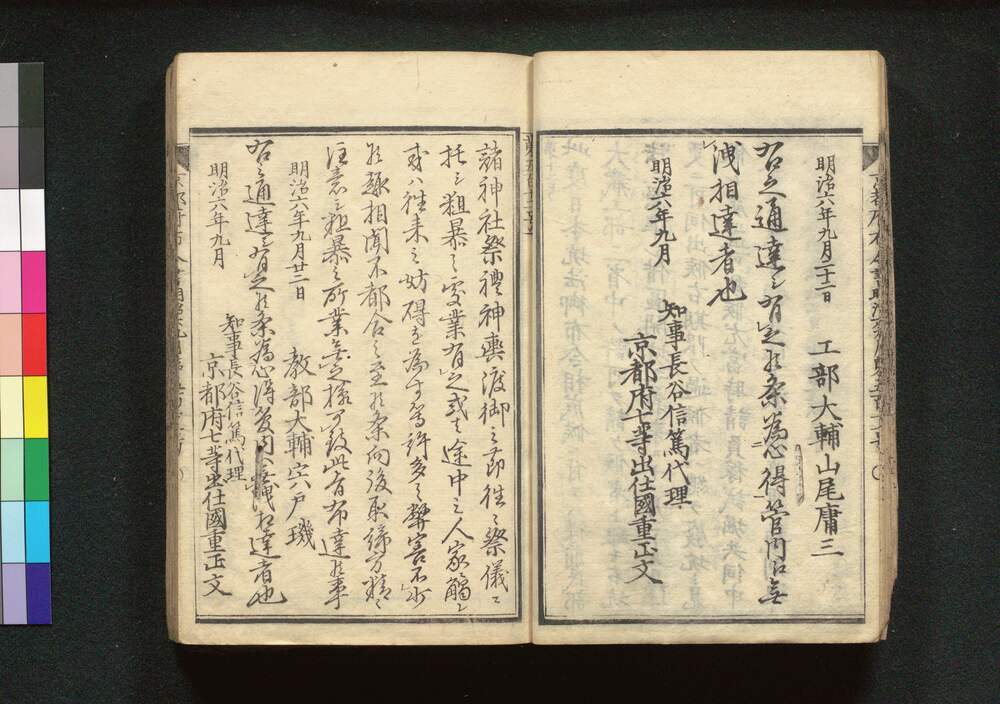 明治六年九月二十二日
工部大輔山尾庸三
右之通達シ有之候条為心得管内江無
洩相達者也
明治六年九月
知事長谷信篤代理
京都府七等出仕國重正文
諸神社祭禮神輿渡御之節往々祭儀ニ
托シ粗暴之受業有之或ハ途中之人家觸レ
或ハ往来之妨碍を為す等許多之弊害不少
候趣相聞不都合之至候条向後取締方精々
注意シ粗暴之所業無之様可致此旨布達候事
明治六年九月廿二日
教部大輔宍戸璣
右之通達シ有之候条為心得管内無洩相達者也
明治六年九月
知事長谷信篤代理
京都府七等出仕國重正文